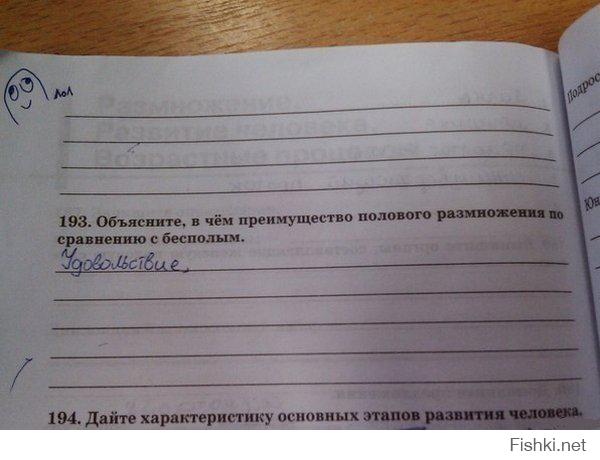 лол
193. Объясните, в чём преимущество полового размножения по
сравнению с бесполым.
Удовольствие.
194. Дайте характеристику основных этапов развития человека.
Подрос
Юн
Размножение
Развитие человека
Fishki.net